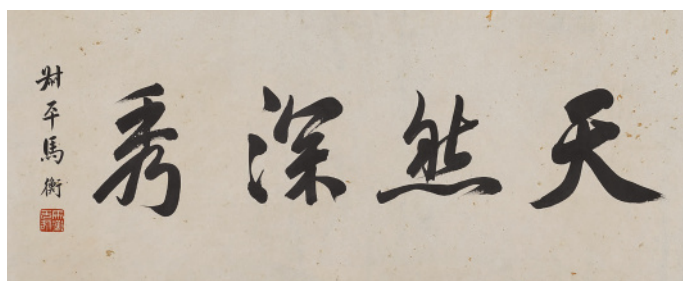 天然深秀
叔平馬衡